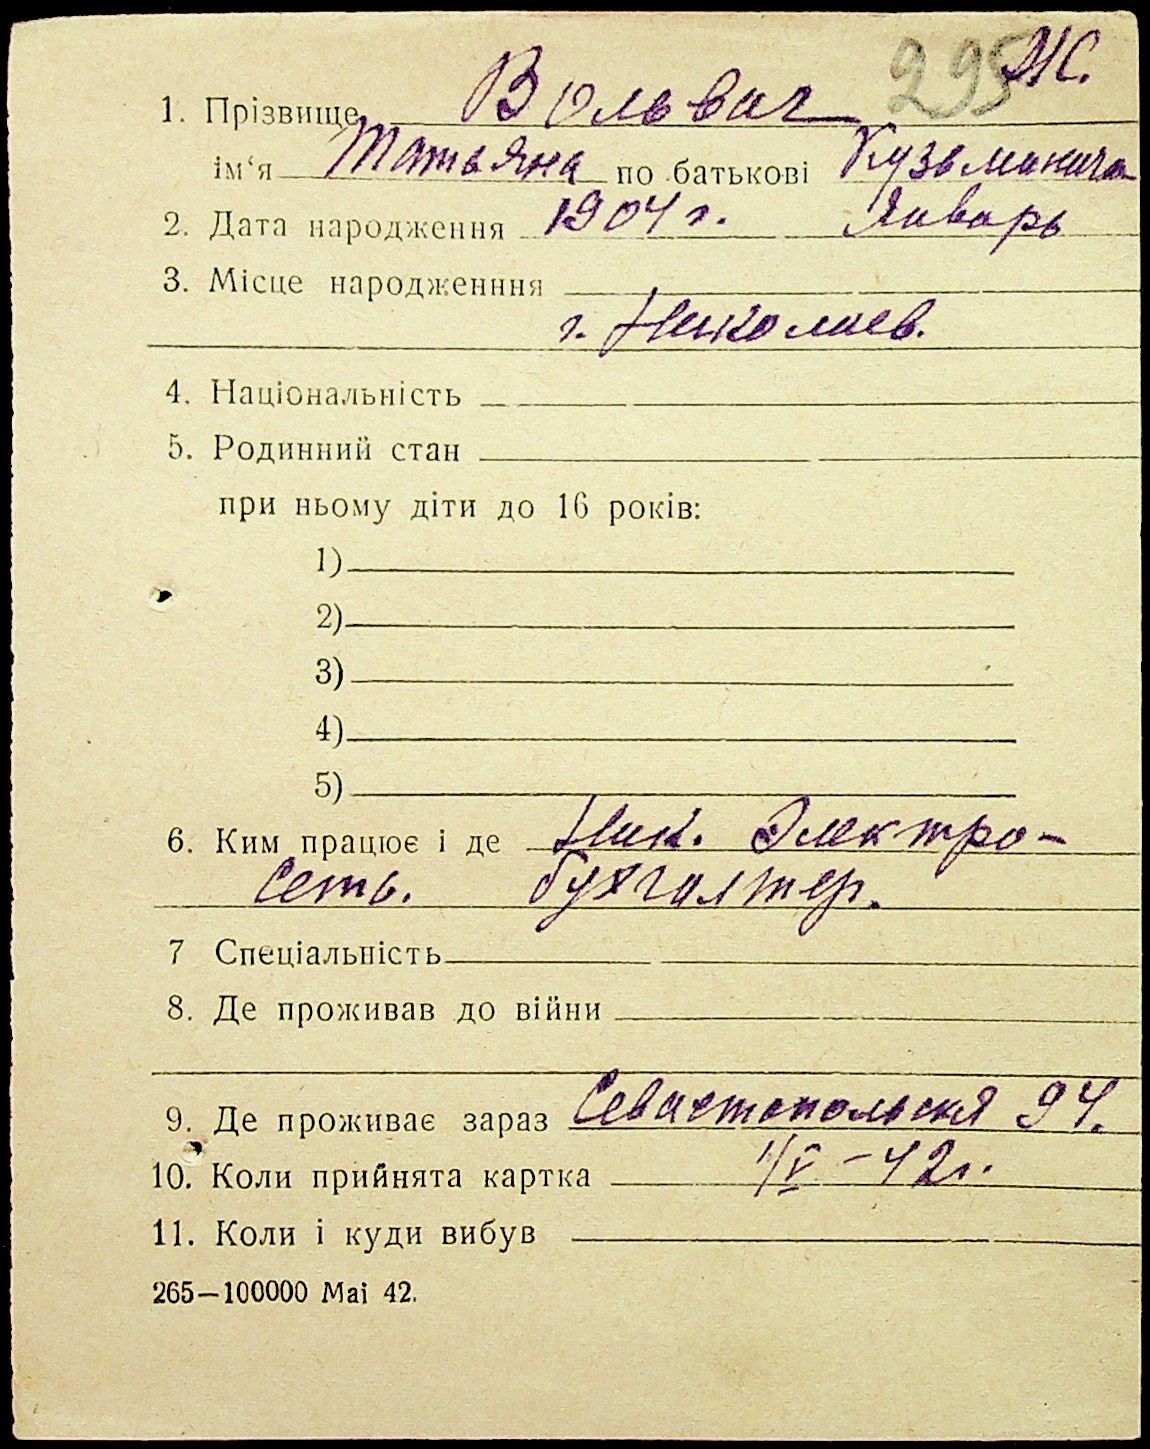 295 Ж.
1. Прізвище Вольвач
ім‘я Татьяна по батькові Кузьминична
2. Дата народження 1904 г. Январь
3. Місце народженння
г. Николаев.
4. Національність
5. Родинний стан
при ньому діти до 16 років:
1)
2)
3)
4)
5)
6. Ким працює і де Ник. Электро-
сеть. бухгалтер.
7 Спеціальність
8. Де проживав до війни
9. Де проживає зараз Севастопольскя 94.
10. Коли прийнята картка 1/V-42г.
11. Коли і куди вибув
265—100000 Маі 42.